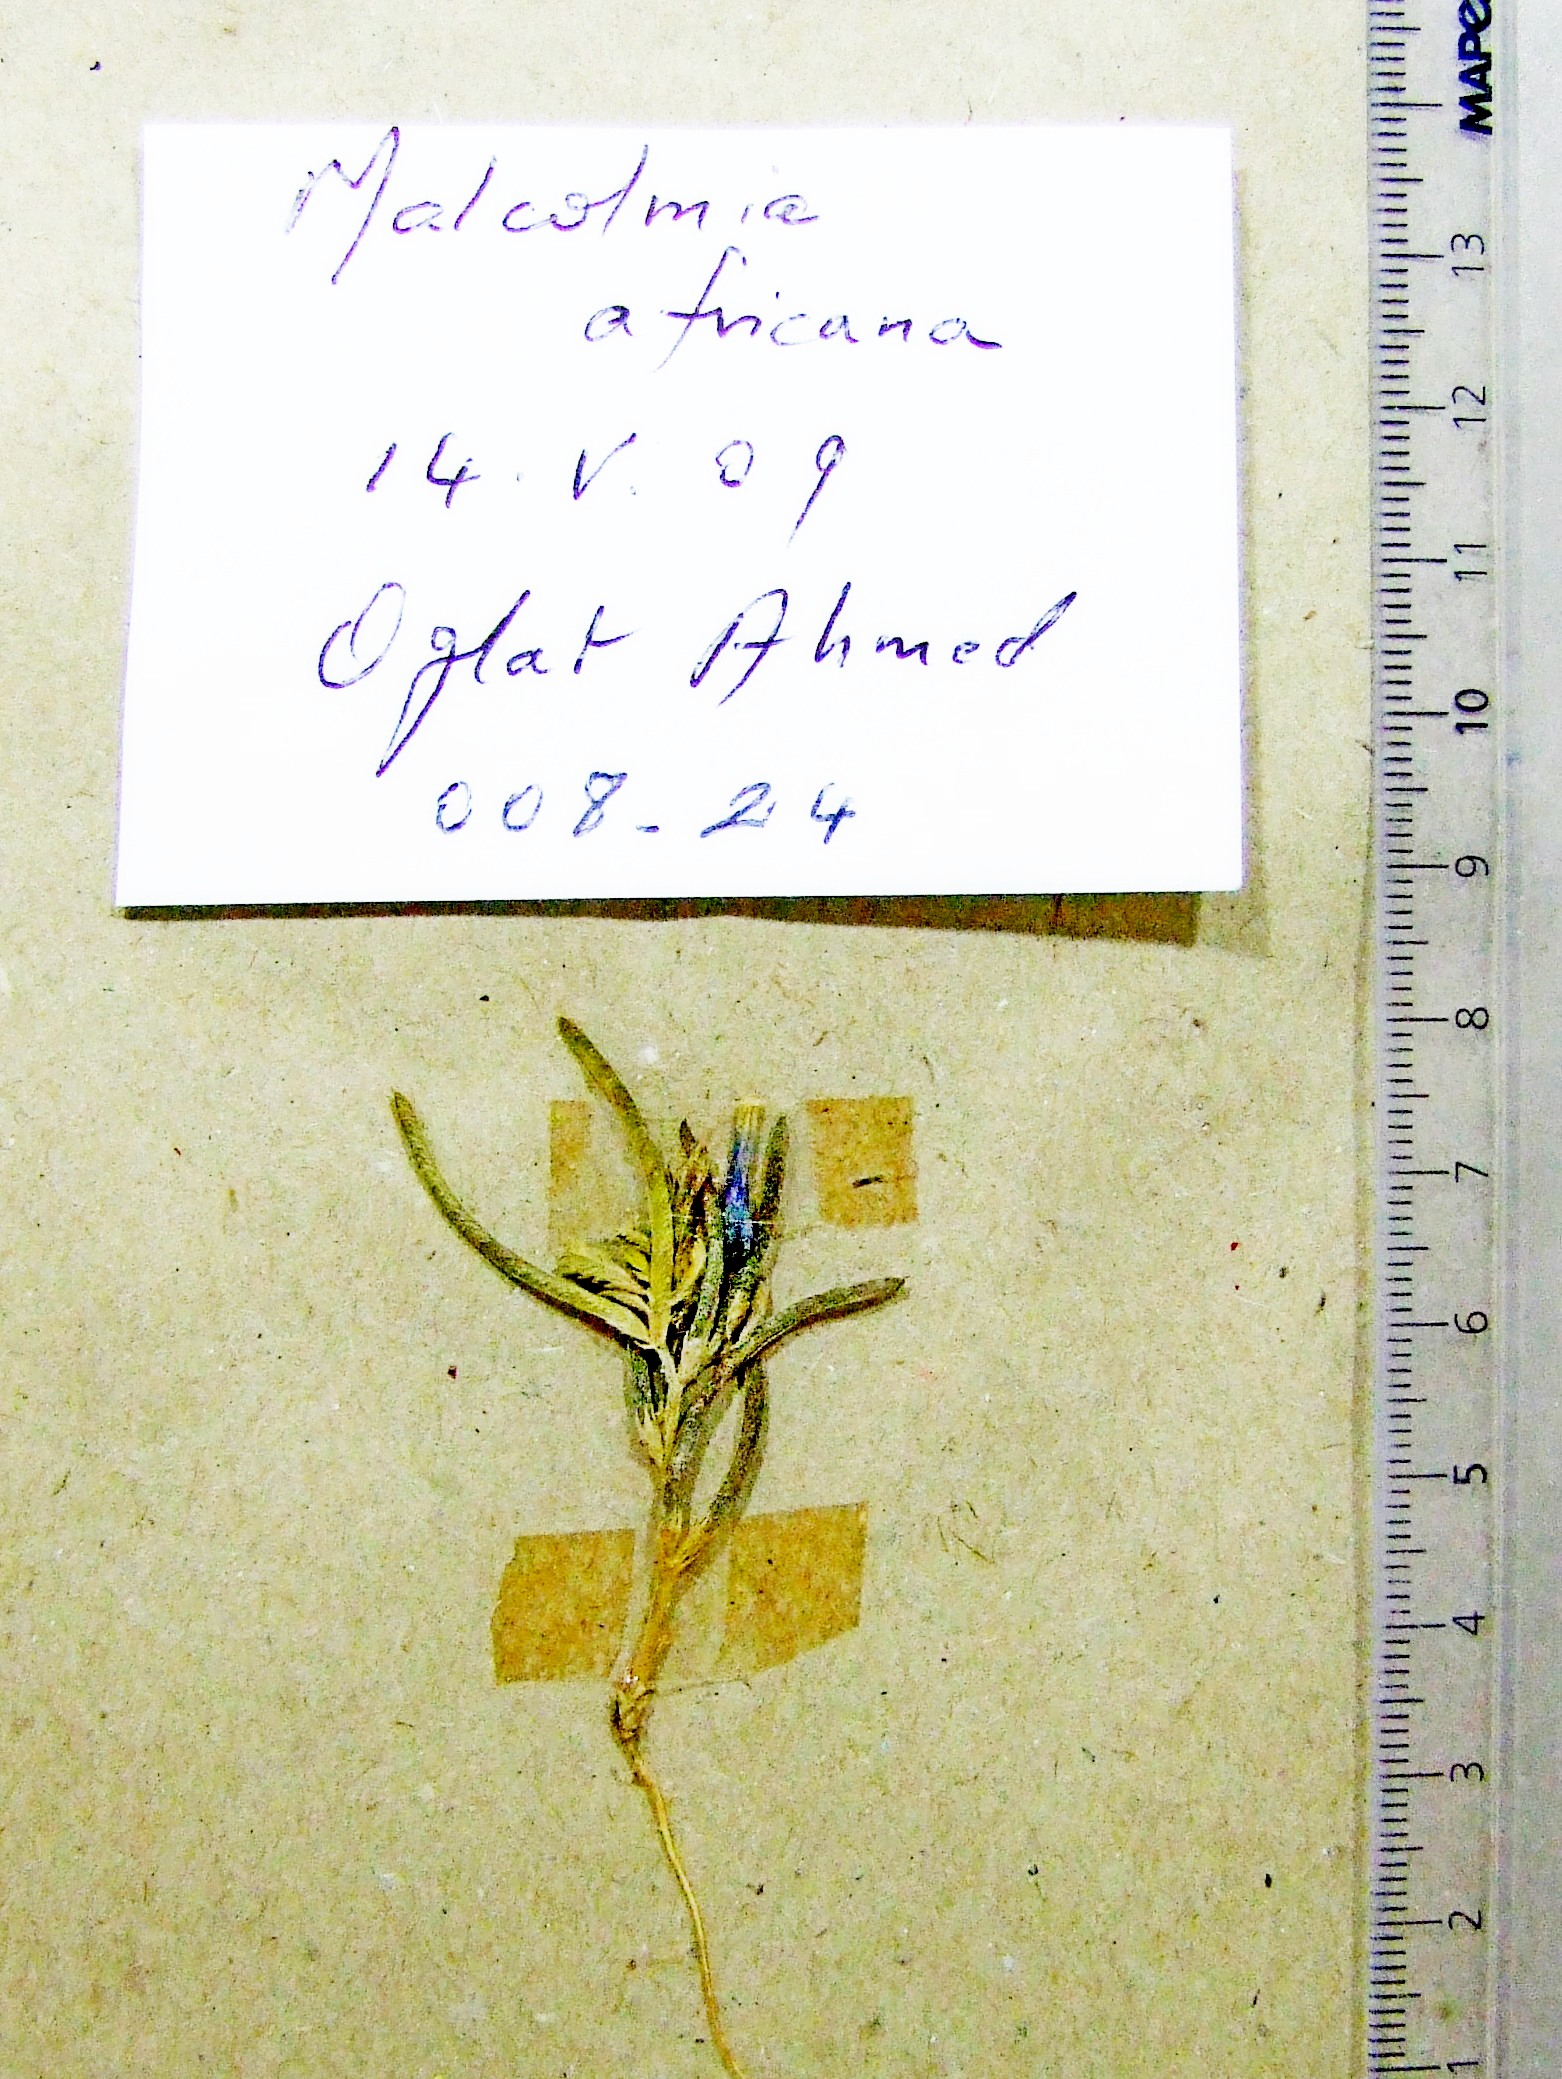 Malcolmia
africana
14. V. 09
Oglat Ahmed
008-24
13
12
11
10
9
8
7
6
5
4
3
2
1